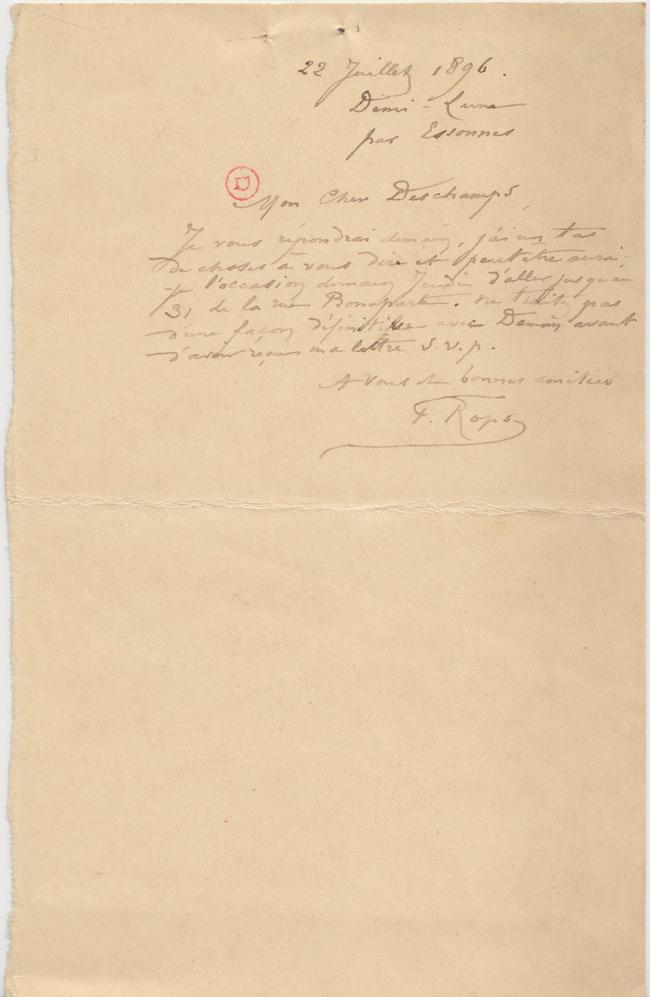 22 Juillet 1896.
Demi-Lune
par Essonnes
D
Mon Cher Deschamps,
Je vous répondrai demain, j'ai un tas
de choses à vous dire et peut être aurai-
je l'occasion demain Jeudi d'aller jusqu'au
31 de la rue Bonaparte. ne traitez pas
d'une façon définitive avec Deman avant
d'avoir reçu ma lettre S.v.p.
A vous et bonnes amitiés
F. Rops